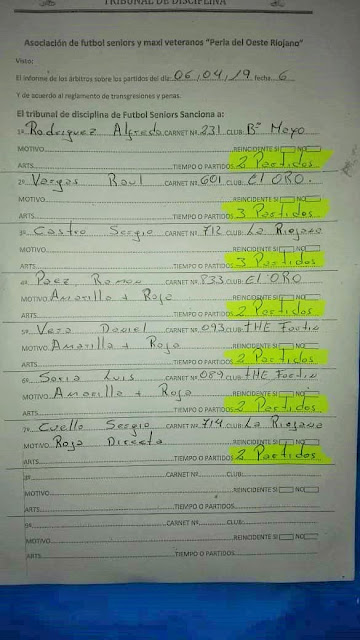 TRIBUNAL DE DISCIPLINA
Asociación de futbol seniors y maxi veteranos "Perla del Oeste Riojano"
Visto:
El informe de los árbitros sobre los partidos del día 06,04,19 fecha 6
Y de acuerdo al reglamento de transgresiones y penas.
El tribunal de disciplina de Futbol Seniors Sanciona a:
1º Rodriguez Alfredo CARNET Nº 231 CLUB: Bº Mayo
MOTIVO REINCIDENTE SI NO
ARTS TIEMPO O PARTIDOS 2 Partidos
2º Vargas Raul CARNET Nº 601 CLUB: El ORO.
MOTIVO REINCIDENTE SI NO
ARTS TIEMPO O PARTIDOS 3 Partidos
3º Castro Sergio CARNET Nº 712 CLUB: La Riojana
MOTIVO REINCIDENTE SI NO
ARTS TIEMPO O PARTIDOS 3 Partidos
4º Paez Ramon CARNET Nº 833 CLUB: El ORO
MOTIVO Amarilla + Roja
ARTS TIEMPO O PARTIDOS 2 Partidos
5º Vera Daniel CARNET Nº 093 CLUB: tHE Fortin
MOTIVO Amarilla + Roja
ARTS TIEMPO O PARTIDOS 2 Partidos
6º Soria Luis CARNET Nº 089 CLUB: tHE Fortin
MOTIVO Amarilla + Roja
ARTS TIEMPO O PARTIDOS 2 Partidos
7º Cuello Sergio CARNET Nº 714 CLUB: La Riojana
MOTIVO Roja Directa
ARTS TIEMPO O PARTIDOS 2 Partidos
CARNET Nº CLUB:
MOTIVO REINCIDENTE SI NO
ARTS TIEMPO O PARTIDOS
9º CARNET Nº CLUB:
MOTIVO REINCIDENTE SI NO
ARTS TIEMPO O PARTIDOS